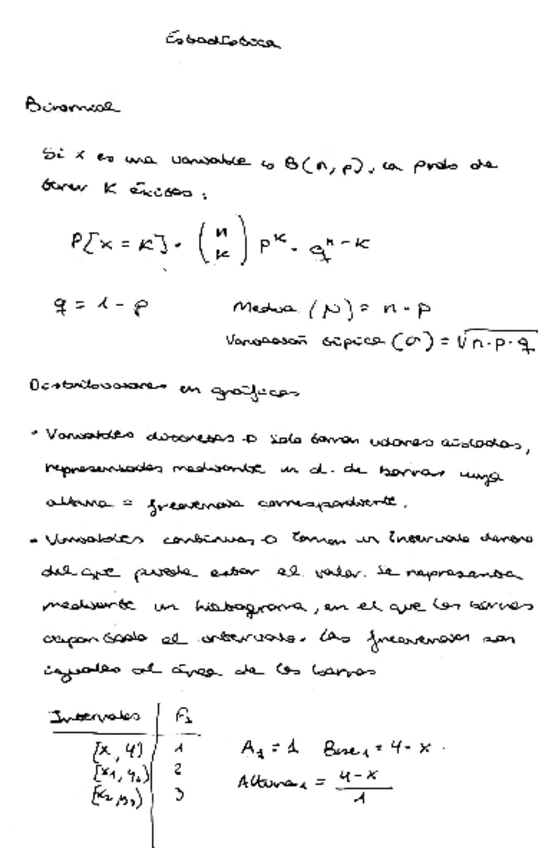 Estadística
Binomial
Si x es una variable es B(n, p), la prob de
tener K éxitos:
P[x = K] = (n k) p^K · q^n-K
q = 1 - p Media (μ) = n · p
Variación típica (σ) = √n·p·q
Distribuciones en gráficas
• Variables discretas → Solo toman valores aislados,
representados mediante un d. de barras cuya
altura = frecuencia correspondiente.
• Variables continuas → Toman un Intervalo dentro
del que pueda estar el valor. Se representa
mediante un histograma, en el que las barras
ocupan todo el intervalo. Las frecuencias son
iguales al área de las barras
Intervalos F₁
[x, y) 1 A₁ = 1 Base₁ = y - x.
[x₁, y₂) 2 Altura₁ = y-x / 1
[x₂, y₃) 3